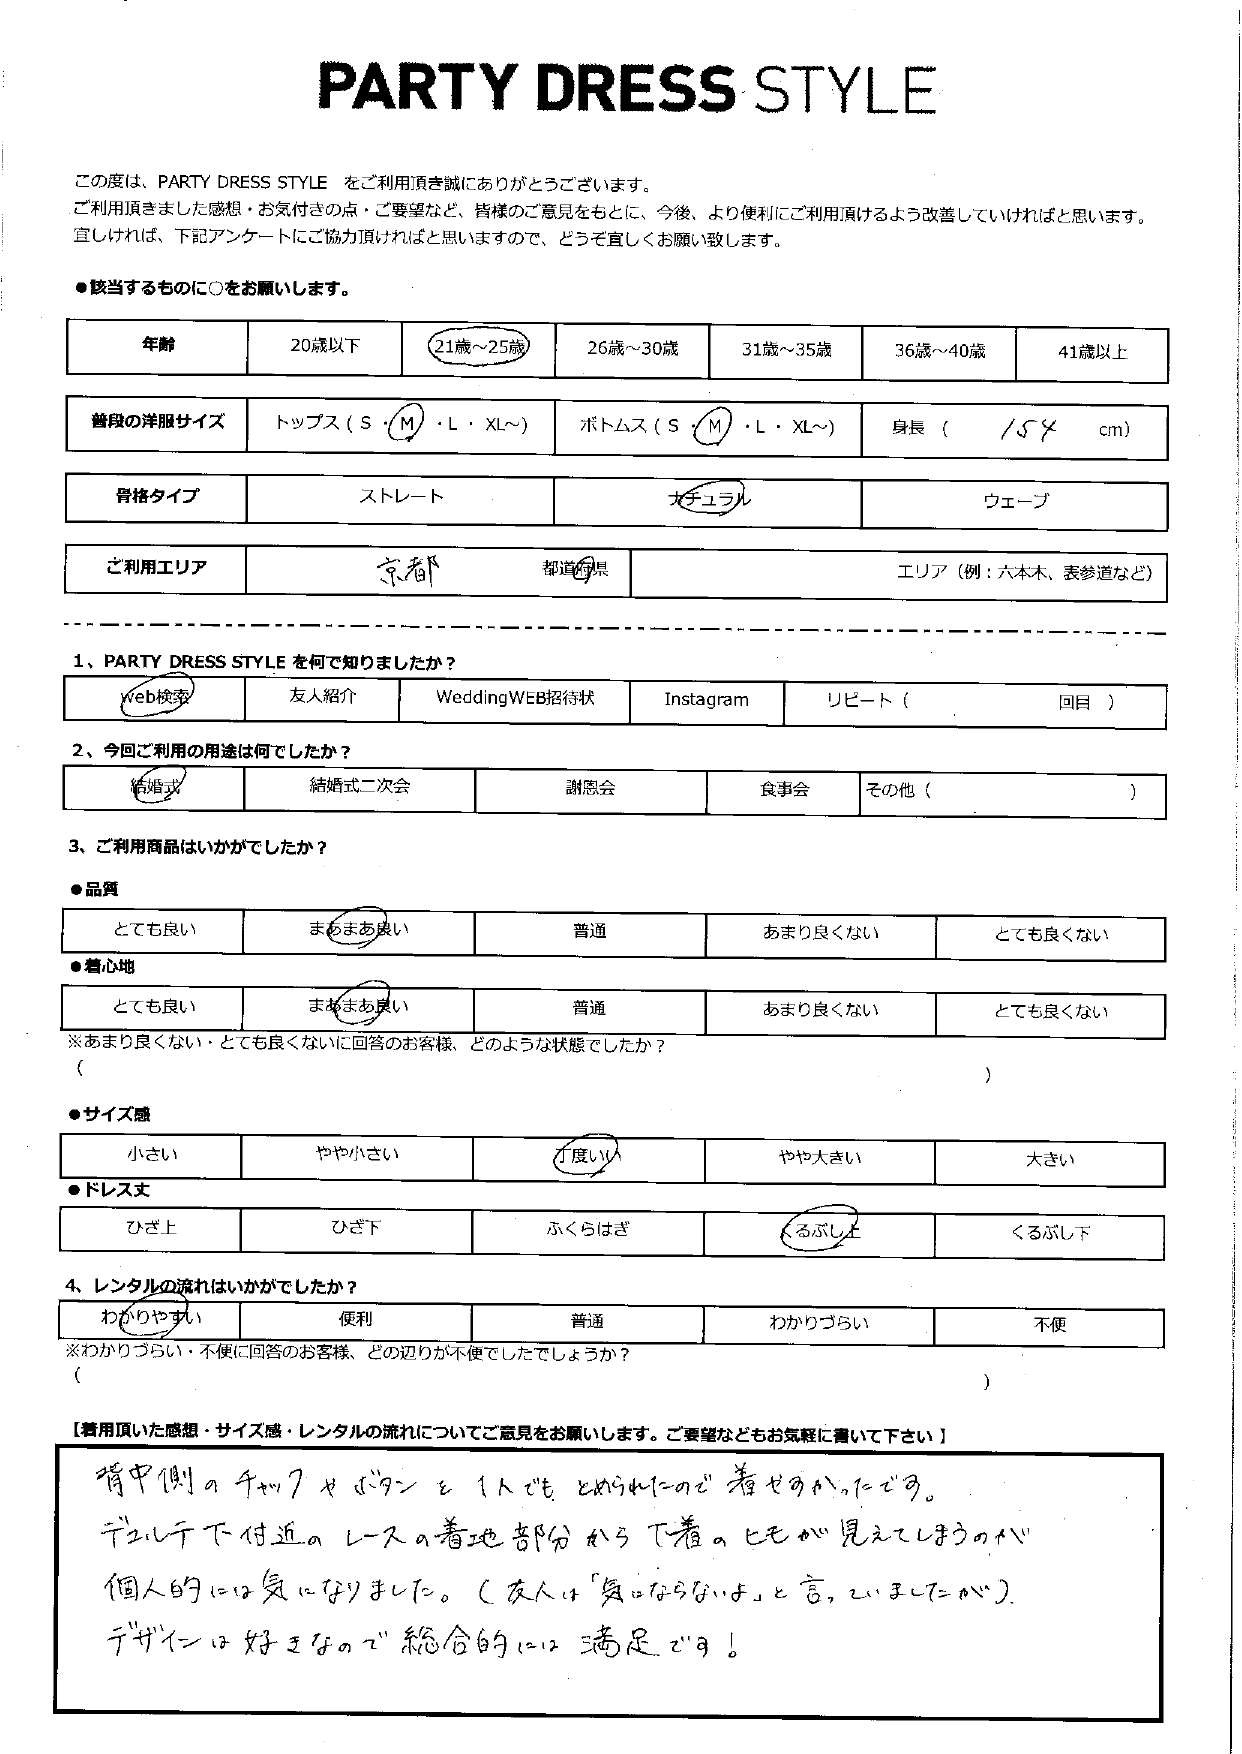 PARTY DRESS STYLE
この度は、PARTY DRESS STYLE をご利用頂き誠にありがとうございます。
ご利用頂きました感想・お気付きの点・ご要望など、皆様のご意見をもとに、今後、より便利にご利用頂けるよう改善していければと思います。
宜しければ、下記アンケートにご協力頂ければと思いますので、どうぞ宜しくお願い致します。
●該当するものに○をお願いします。
年齢 20歳以下 21歳～25歳 26歳～30歳 31歳～35歳 36歳～40歳 41歳以上
普段の洋服サイズ トップス ( S ・ M ・ L ・ XL～) ボトムス ( S ・ M ・ L ・ XL～) 身長 ( 154 cm)
骨格タイプ ストレート ナチュラル ウェーブ
ご利用エリア 京都 都道府県 エリア（例：六本木、表参道など）
1、PARTY DRESS STYLE を何で知りましたか？
web検索 友人紹介 WeddingWEB招待状 Instagram リピート ( 回目 )
2、今回ご利用の用途は何でしたか？
結婚式 結婚式二次会 謝恩会 食事会 その他 ( )
3、ご利用商品はいかがでしたか？
●品質
とても良い まあまあ良い 普通 あまり良くない とても良くない
●着心地
とても良い まあまあ良い 普通 あまり良くない とても良くない
※あまり良くない・とても良くないに回答のお客様、どのような状態でしたか？
( )
●サイズ感
小さい やや小さい 丁度いい やや大きい 大きい
●ドレス丈
ひざ上 ひざ下 ふくらはぎ くるぶし上 くるぶし下
4、レンタルの流れはいかがでしたか？
わかりやすい 便利 普通 わかりづらい 不便
※わかりづらい・不便に回答のお客様、どの辺りが不便でしたでしょうか？
( )
【着用頂いた感想・サイズ感・レンタルの流れについてご意見をお願いします。ご要望などもお気軽に書いて下さい】
背中側のチャックやボタンを1人でもとめられたので着やすかったです。
デコルテ下付近のレースの着地部分から下着のヒモが見えてしまうのが
個人的には気になりました。(友人は「気にならないよ」と言っていましたが)。
デザインは好きなので総合的には満足です!